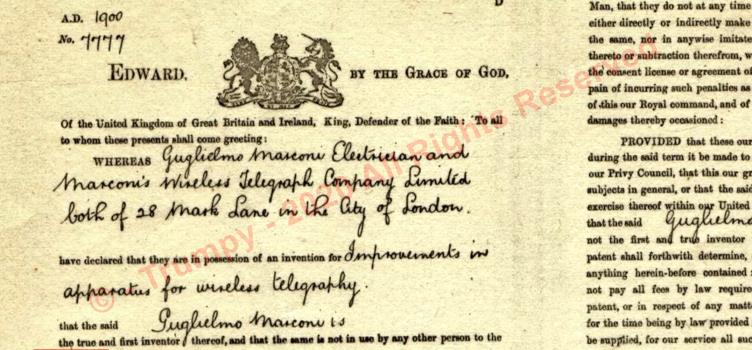 A.D. 1900
No. 7777
EDWARD, BY THE GRACE OF GOD,
Of the United Kingdom of Great Britain and Ireland, King, Defender of the Faith: To all
to whom these presents shall come greeting:
WHEREAS Guglielmo Marconi Electrician and
Marconi's Wireless Telegraph Company Limited
both of 28 Mark Lane in the City of London.
have declared that they are in possession of an invention for Improvements in
apparatus for wireless telegraphy.
that the said Guglielmo Marconi is
the true and first inventor thereof, and that the same is not in use by any other person to the
Man, that they do not at any time
either directly or indirectly make
the same, nor in anywise imitate
thereto or subtraction therefrom,
the consent license or agreement of
pain of incurring such penalties as
of this our Royal command, and of
damages thereby occasioned:
PROVIDED that these our
during the said term it be made to
our Privy Council, that this our
subjects in general, or that the said
exercise thereof within our United
that the said Guglielmo
not the first and true inventor
patent shall forthwith determine,
anything herein-before contained
not pay all fees by law require
patent, or in respect of any
for the time being by law provided
be supplied, for our service all
© Trumpy - 2020 All Rights Reserved